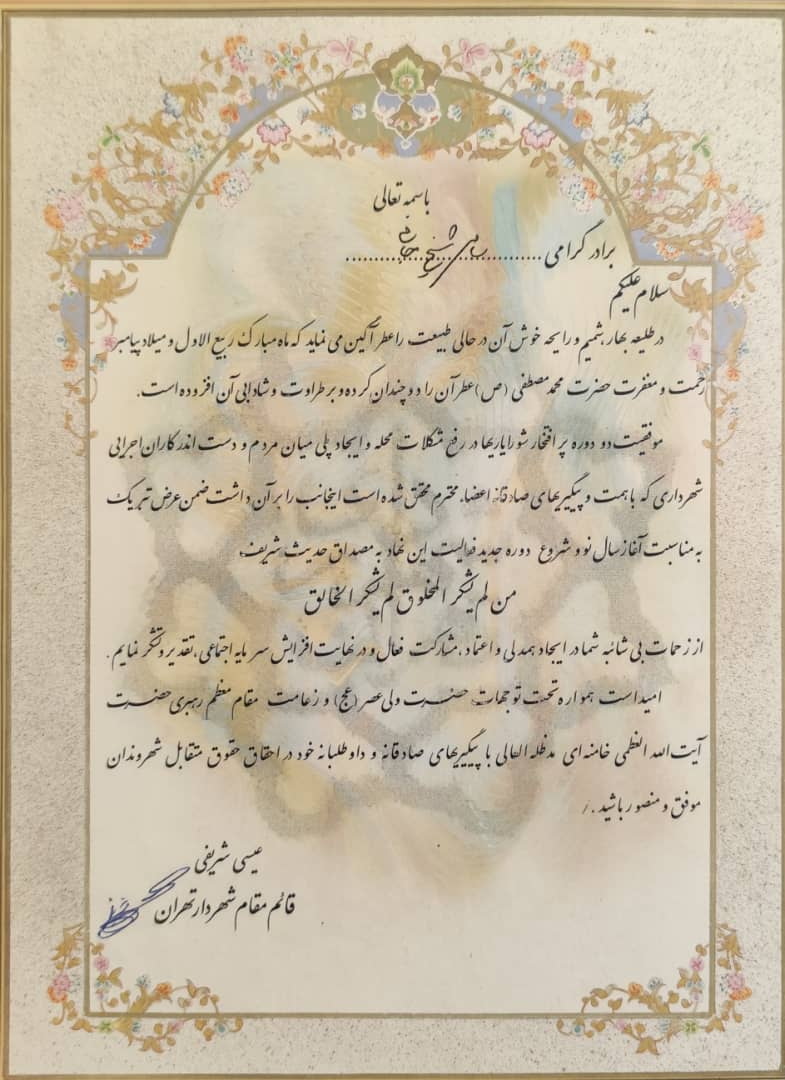 باسمه تعالی
برادر گرامی ............................
سلام علیکم
در طلیعه بهار، شمیم و رایحه خوش آن در حالی طبیعت را عطر آگین می نماید که ماه مبارک ربیع الاول و میلاد پیامبر
رحمت و مغفرت حضرت محمد مصطفی (ص) عطر آن را دو چندان کرده و بر طراوت و شادابی آن افزوده است.
موفقیت دو دوره پر افتخار شورایاریها در رفع مشکلات محله و ایجاد پلی میان مردم و دست اندرکاران اجرایی
شهرداری که با همت و پیگیریهای صادقانه اعضاء محترم محقق شده است اینجانب را بر آن داشت ضمن عرض تبریک
به مناسبت آغاز سال نو و شروع دوره جدید فعالیت این نهاد به مصداق حدیث شریف،
من لم یشکر المخلوق لم یشکر الخالق
از زحمات بی شائبه شما در ایجاد همدلی و اعتماد، مشارکت فعال و در نهایت افزایش سرمایه اجتماعی، تقدیر و تشکر نمایم.
امید است همواره تحت توجهات حضرت ولی عصر (عج) و زعامت مقام معظم رهبری حضرت
آیت الله العظمی خامنه ای مدظله العالی با پیگیریهای صادقانه و داوطلبانه خود در احقاق حقوق متقابل شهروندان
موفق و منصور باشید ./
عیسی شریفی
قائم مقام شهردار تهران